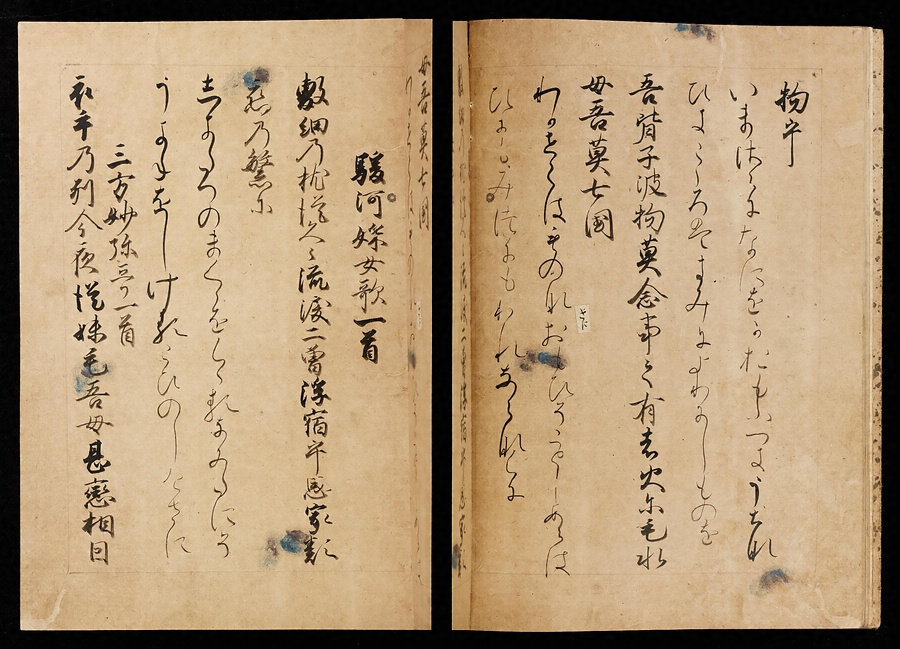 物乎
いまさらになにをかおもはむうちな
ひきこゝろはきみによりにしものを
吾背子波物莫念事之有者火尓毛水
母吾莫七國
わかせこはものなおもひそことしあらは
ひにもみつにもわれならなくに
駿河婇女歌一首
敷細乃枕従久々流涙二曽浮宿乎思家類
戀乃繁尓
しきたへのまくらをくゝるなみたにそ
うきねをしけるこひのしけきに
三方沙弥歌一首
衣手乃別今夜従妹毛吾母甚戀相因